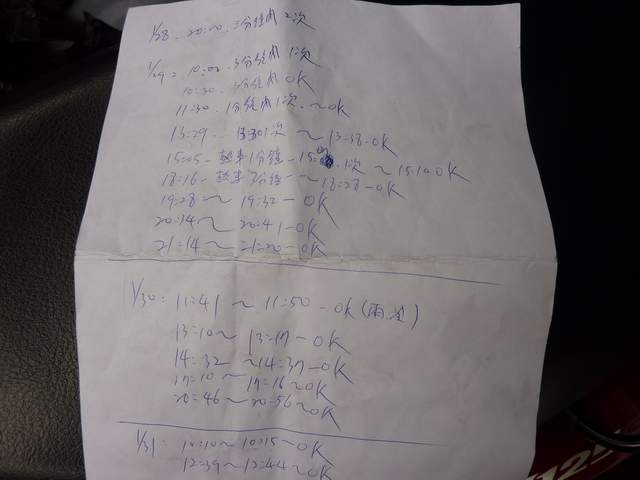 1/28. 20:00. 3分鐘內 2次
1/29: 10:00. 3分鐘內 1次
10:30. 3分鐘內 OK
11:30. 1分鐘內 1次. ~OK
13:29.. 13:30 1次 ~ 13:38-OK
15:05- 熱車1分鐘-15: 1次 ~ 15:10 OK
18:16- 熱車 分鐘- ~ 18:28-OK
19:28 ~ 19:32-OK
20:34 ~ 20:41-OK
21:14 ~ 21:20-OK
1/30: 11:41 ~ 11:50-OK (雨 )
13:10 ~ 13:17-OK
14:32 ~ 14:37-OK
17:10 ~ 17:16~OK
20:46 ~ 20:56~OK
1/31: 10:10 ~ 10:15~OK
12:39 ~ 12:44~OK
125